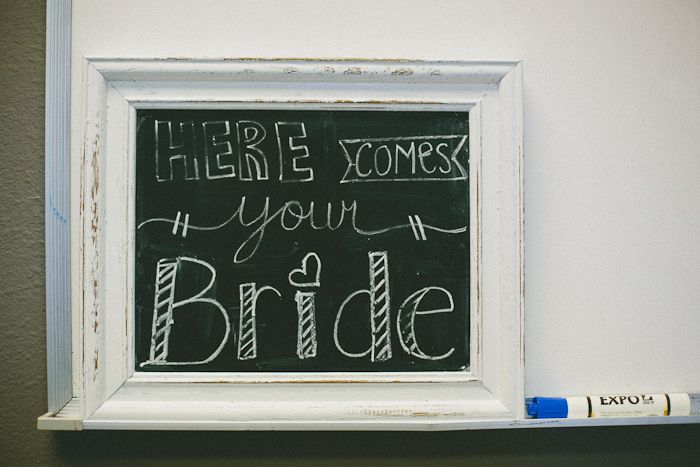 HERE COMES
your
Bride
EXPO